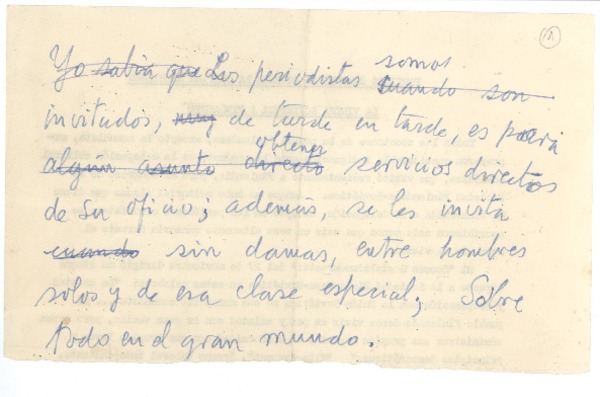 (1).
Yo sabía que Los periodistas somos cuando son
invitados, muy de tarde en tarde, es para
obtener
algún asunto directo servicios directos
de su oficio; además, se les invita
cuando sin damas, entre hombres
solos y de esa clase especial; Sobre
todo en el gran mundo.